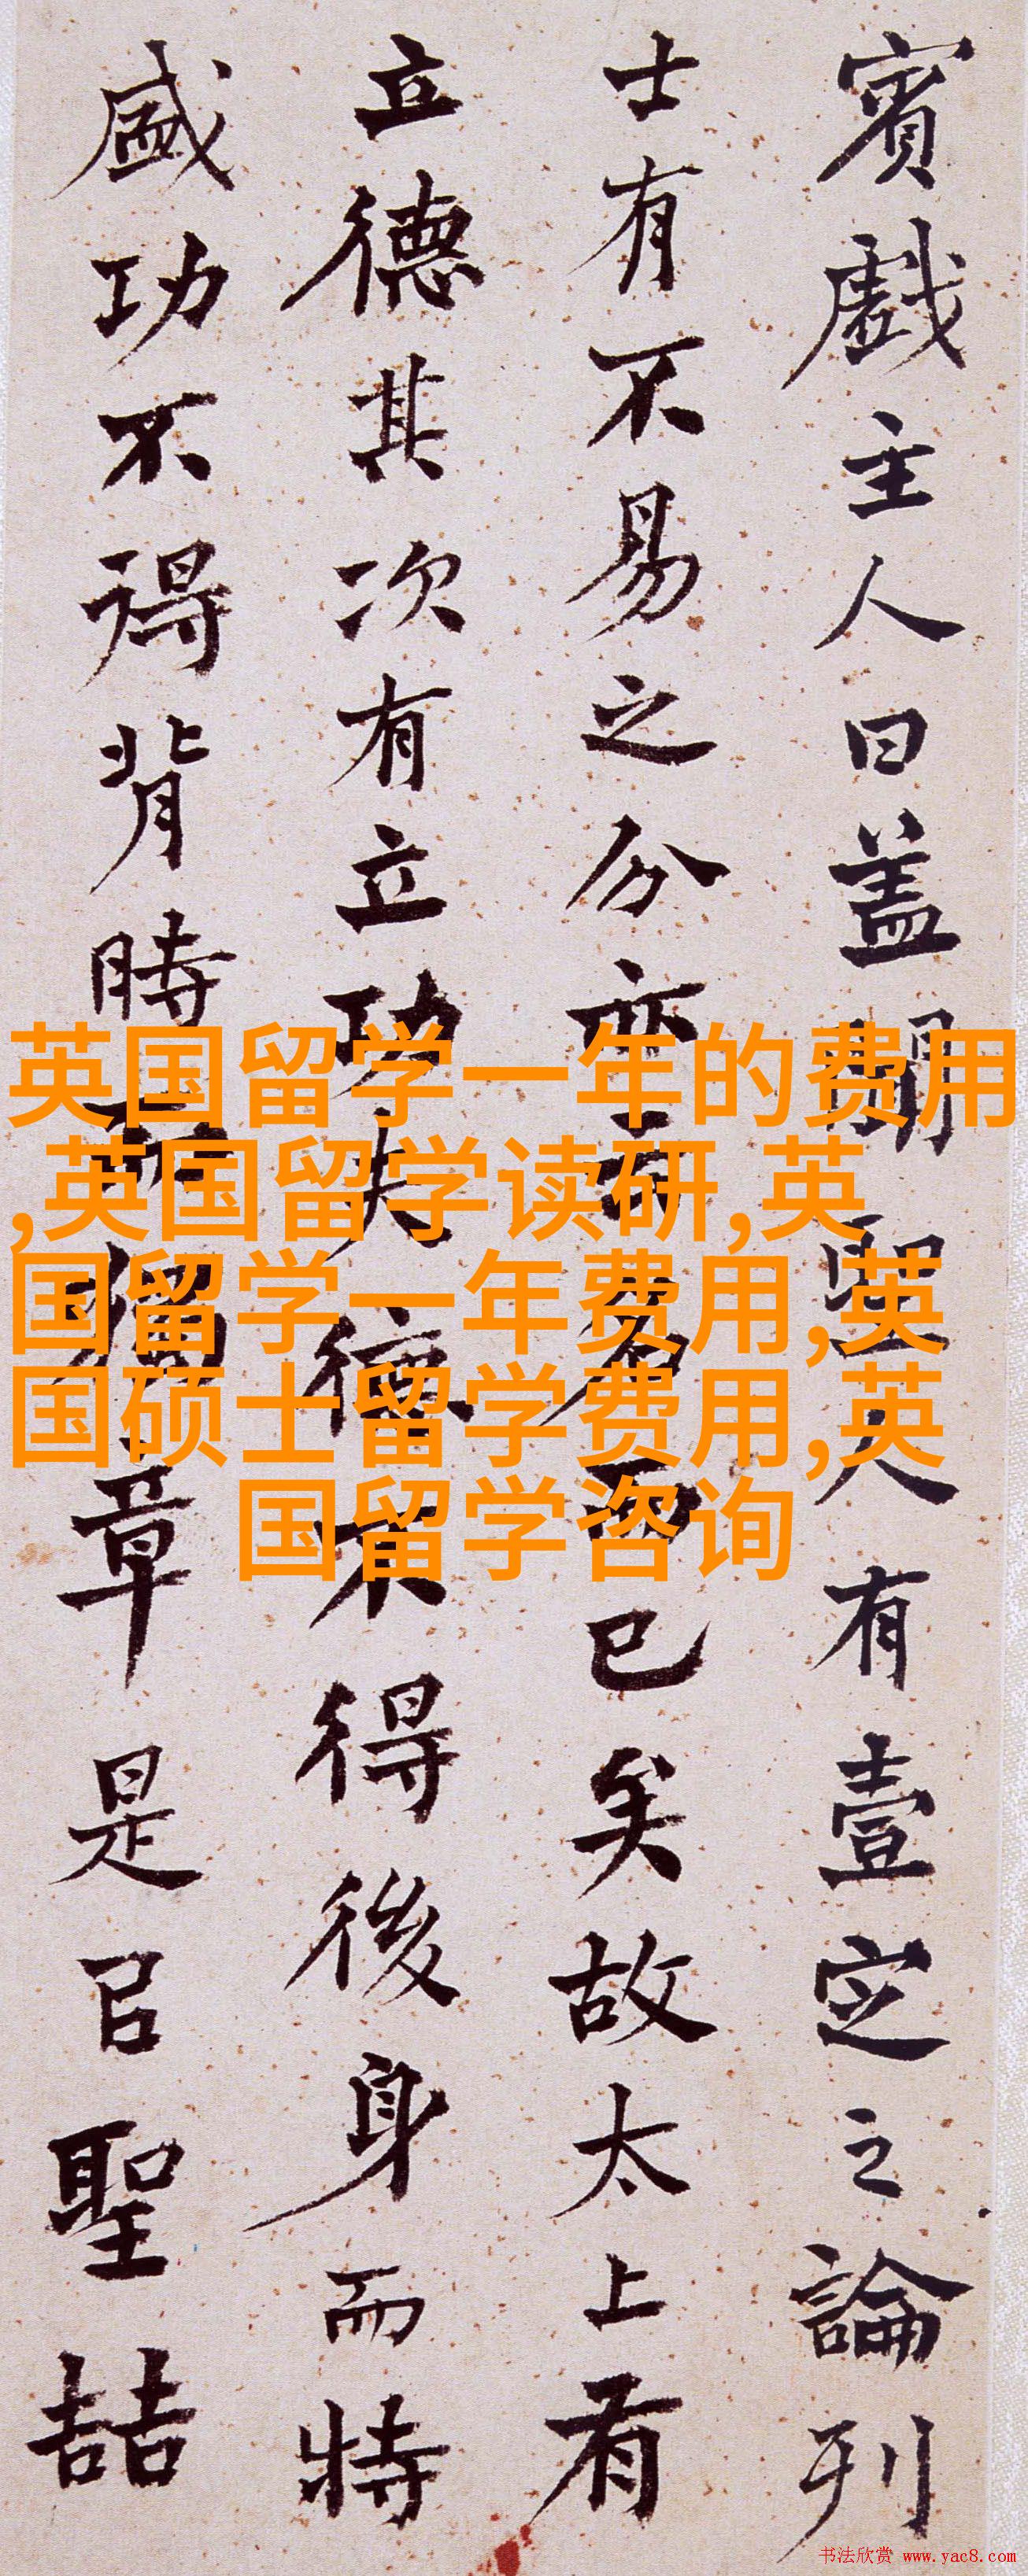 賓戲主人曰盖聞聖人有壹定之論列
士有不易之分亦云名而已矣故太上有
立德其次有立功夫德不得後身而特
盛功不得背時而獨章是㠯聖喆
英国留学一年的费用
,英国留学读研,英
国留学一年费用,英
国硕士留学费用,英
国留学咨询
书法欣赏 www.yac8.com